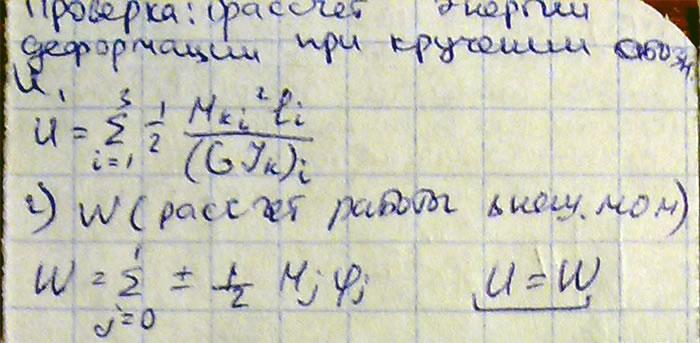 Проверка: рассчет энергии
деформации при кручении
U,
U = 3 Σ i=1 1/2 Mкi² li / (GJк)i
2) W (рассчет работы внеш. мом)
W = 1 Σ j=0 ± 1/2 Mj φj U = W